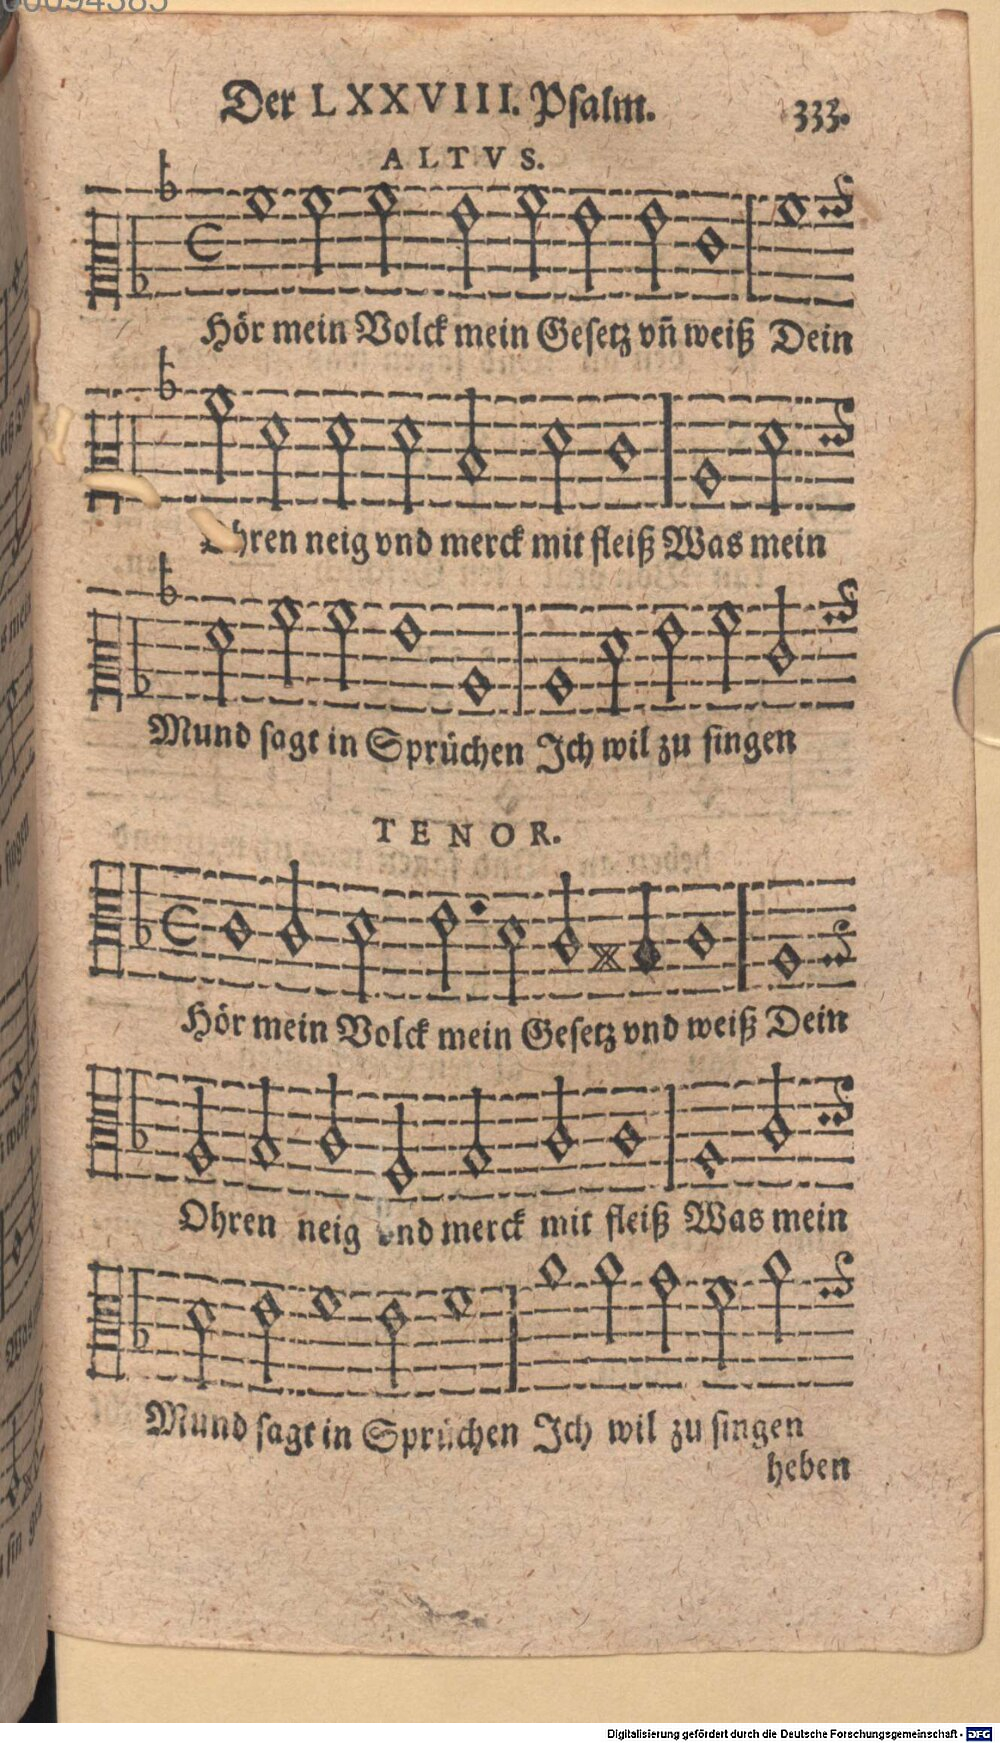 Der LXXVIII. Psalm. 333.
ALTVS.
Hör mein Volck mein Gesetz vn̄ weiß Dein
Ohren neig vnd merck mit fleiß Was mein
Mund sagt in Sprüchen Ich wil zu singen
TENOR.
Hör mein Volck mein Gesetz vnd weiß Dein
Ohren neig vnd merck mit fleiß Was mein
Mund sagt in Sprüchen Ich wil zu singen
heben
Digitalisierung gefördert durch die Deutsche Forschungsgemeinschaft - DFG